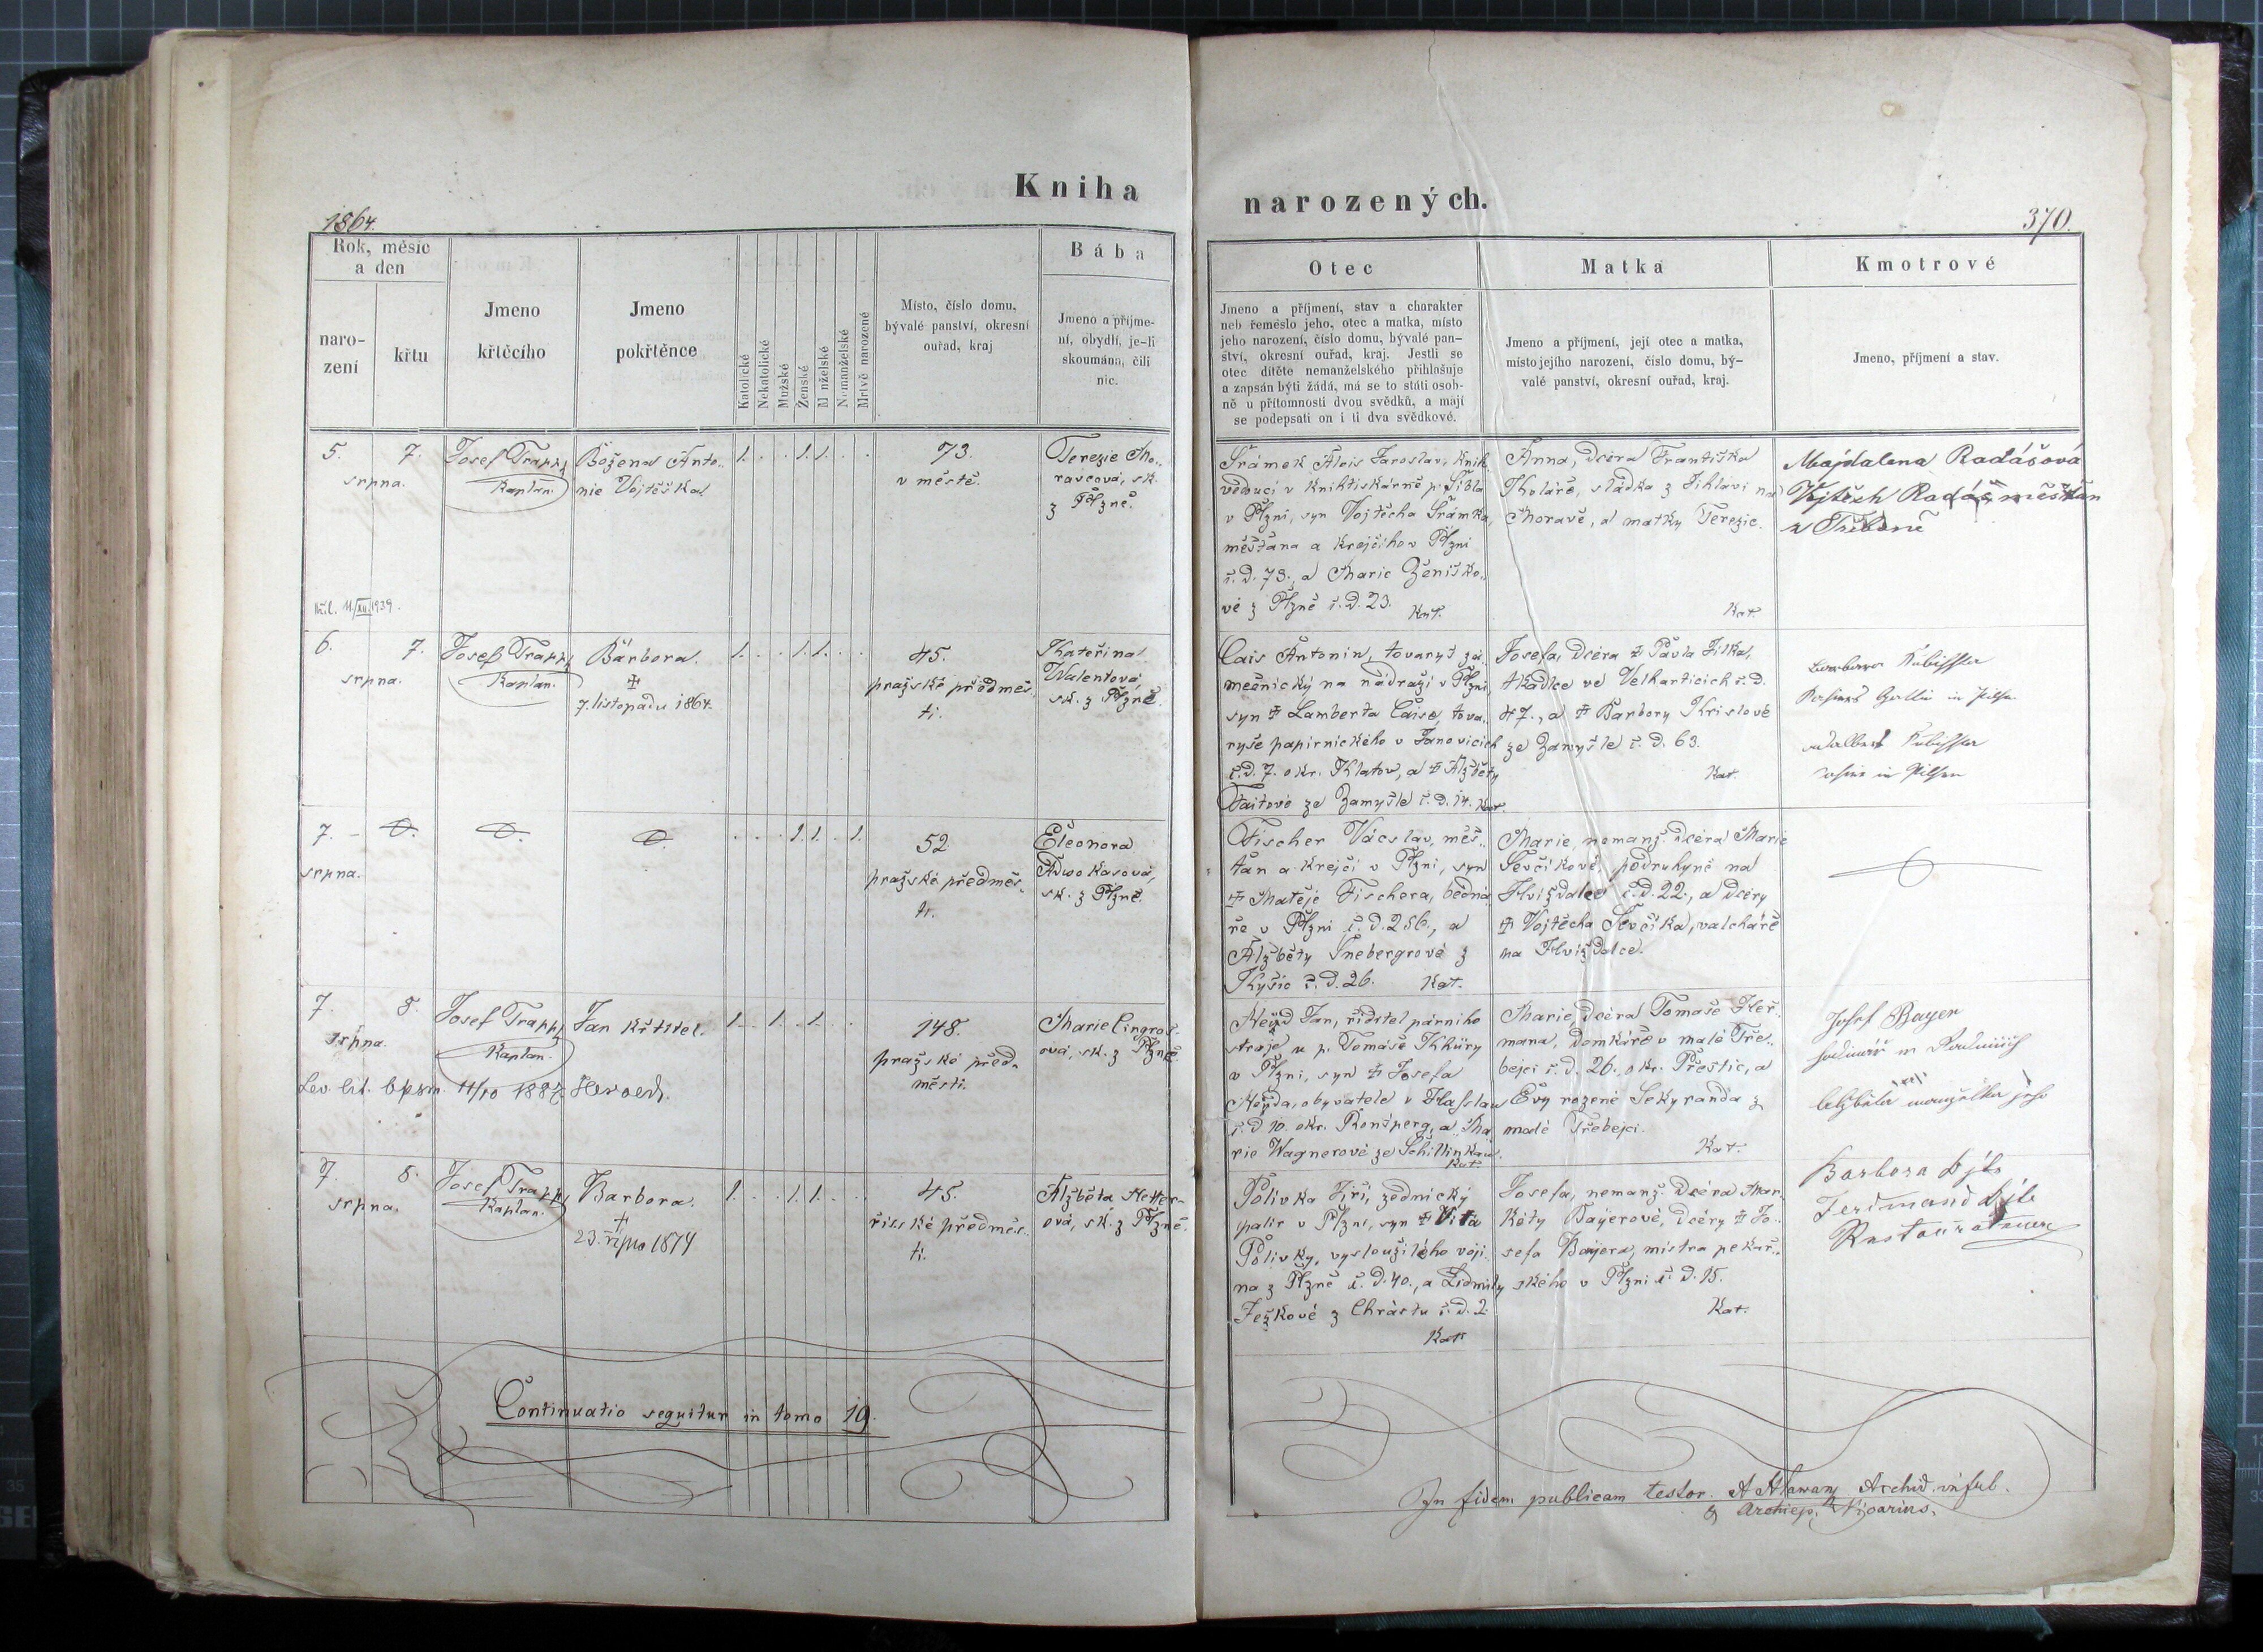 Kniha
narozených.
1864.
370.
Rok, měsíc
a den
naro-
zení
křtu
Jmeno
křtěcího
Jmeno
pokřtěnce
Katolické
Nekatolické
Mužské
Ženské
Manželské
Nemanželské
Mrtvě narozené
Místo, číslo domu,
bývalé panství, okresní
ouřad, kraj
Bába
Jmeno a příjme-
ní, obydlí, je-li
skoumána, čili
nic.
Otec
Jmeno a příjmení, stav a charakter
neb řemeslo jeho, otec a matka, místo
jeho narození, číslo domu, bývalé pan-
ství, okresní ouřad, kraj. Jestli se
otec dítěte nemanželského přihlašuje
a zapsán býti žádá, má se to státi osob-
ně u přítomnosti dvou svědků, a mají
se podepsati on i ti dva svědkové.
Matka
Jmeno a příjmení, její otec a matka,
místo jejího narození, číslo domu, bý-
valé panství, okresní ouřad, kraj.
Kmotrové
Jmeno, příjmení a stav.
5. 7.
srpna.
11/XII.1939.
Josef Trapp
Kaplan.
Božena Anto-
nie Vojtěška
1. . . 1. 1. . .
73.
v městě.
Terezie Mo-
ravcová, sk.
z Plzně.
Šrámek Alois Jaroslav, knih
vedoucí v knihtiskárně p. Šíbla
v Plzni, syn Vojtěcha Šrámka,
měšťana a krejčího v Plzni
č.d. 73., a Marie Ženíško-
vé z Plzně č.d. 23. Kat.
Anna, dcéra Františka
Koláře, sládka z Jihlavi na
Moravě, a matky Terezie.
Kat
Majdalena Radášová
Vojtěch Radáš měšťan
6. 7.
srpna.
Josef Trapp
Kaplan.
Barbora.
✝
7. listopadu 1864.
1. . . 1. 1. . .
45.
pražské předměs-
tí.
Kateřina
Walentová,
sk. z Plzně.
Cais Antonín, tovaryš zá-
mečnický na nádraží v Plzni,
syn ✝ Lamberta Caise, tova-
ryše papírnického v Janovicích
č.d. 7. okr. Klatov, a ✝ Alžběty
Faitové ze Zamyšle č.d. 14. Kat.
Josefa, dcéra ✝ Pavla Jilka,
tkadlce ve Velharticích č.d.
47., a ✝ Barbory Krislové
ze Zamyšle č.d. 63.
Kat.
in Pilsen
7.
srpna.
. . . 1. 1. . 1.
52
pražské předměs-
tí.
Eleonora
Adwokasová,
sk. z Plzně.
Fischer Václav, měš-
ťan a krejčí v Plzni, syn
✝ Matěje Fischera, bedná-
ře v Plzni č.d. 256., a
Alžběty Šnebergrové z
Kyšic č.d. 26. Kat.
Marie, nemanž. dcéra Marie
Ševčíkové, podruhyně na
Hvížďalce č.d. 22., a dcéry
✝ Vojtěcha Ševčíka, valcháře
na Hvížďalce.
7. 8.
srpna.
Josef Trapp
Kaplan.
Jan Křtitel.
11/10 1887
1. . 1. . 1. . .
148.
pražské před-
městí.
Marie Cingroš-
ová, sk. z Plzně.
Nejd Jan, řiditel párního
stroje u p. Tomáše Khüry
v Plzni, syn ✝ Josefa
Nejda, obyvatele v Haslau
č.d. 10. okr. Ronsperg, a Ma
rie Wagnerové ze Schillinkau.
Kat.
Marie, dcéra Tomaše Heř-
mana, domkáře v malé Tře-
bejci č.d. 26., okr. Přeštic, a
Evy rozené Sekyranda z
malé Třebejci.
Kat.
Josef Bayer
manželka jeho
7. 8.
srpna.
Josef Trapp
Kaplan.
Barbora.
✝
23. října 1874
1. . . 1. 1. . .
45.
říšské předměs-
tí.
Alžběta Ketter-
ová, sk. z Plzně.
Polívka Jiří, zednický
palír v Plzni, syn ✝ Víta
Polívky, vysloužilého voji-
na z Plzně č.d. 40., a Lidmily
Ježkové z Chrástu č.d. 2.
Kat
Josefa, nemanž. dcéra Mar-
kéty Bayerové, dcéry ✝ Jo-
sefa Bayera, mistra pekař-
ského v Plzni č.d. 15.
Kat.
Barbora
Ferdinand
Continuatio sequitur in tomo 19.
In fidem publicam testor. A Hlawan Archid. inful.
& Archiep. Vicarius.